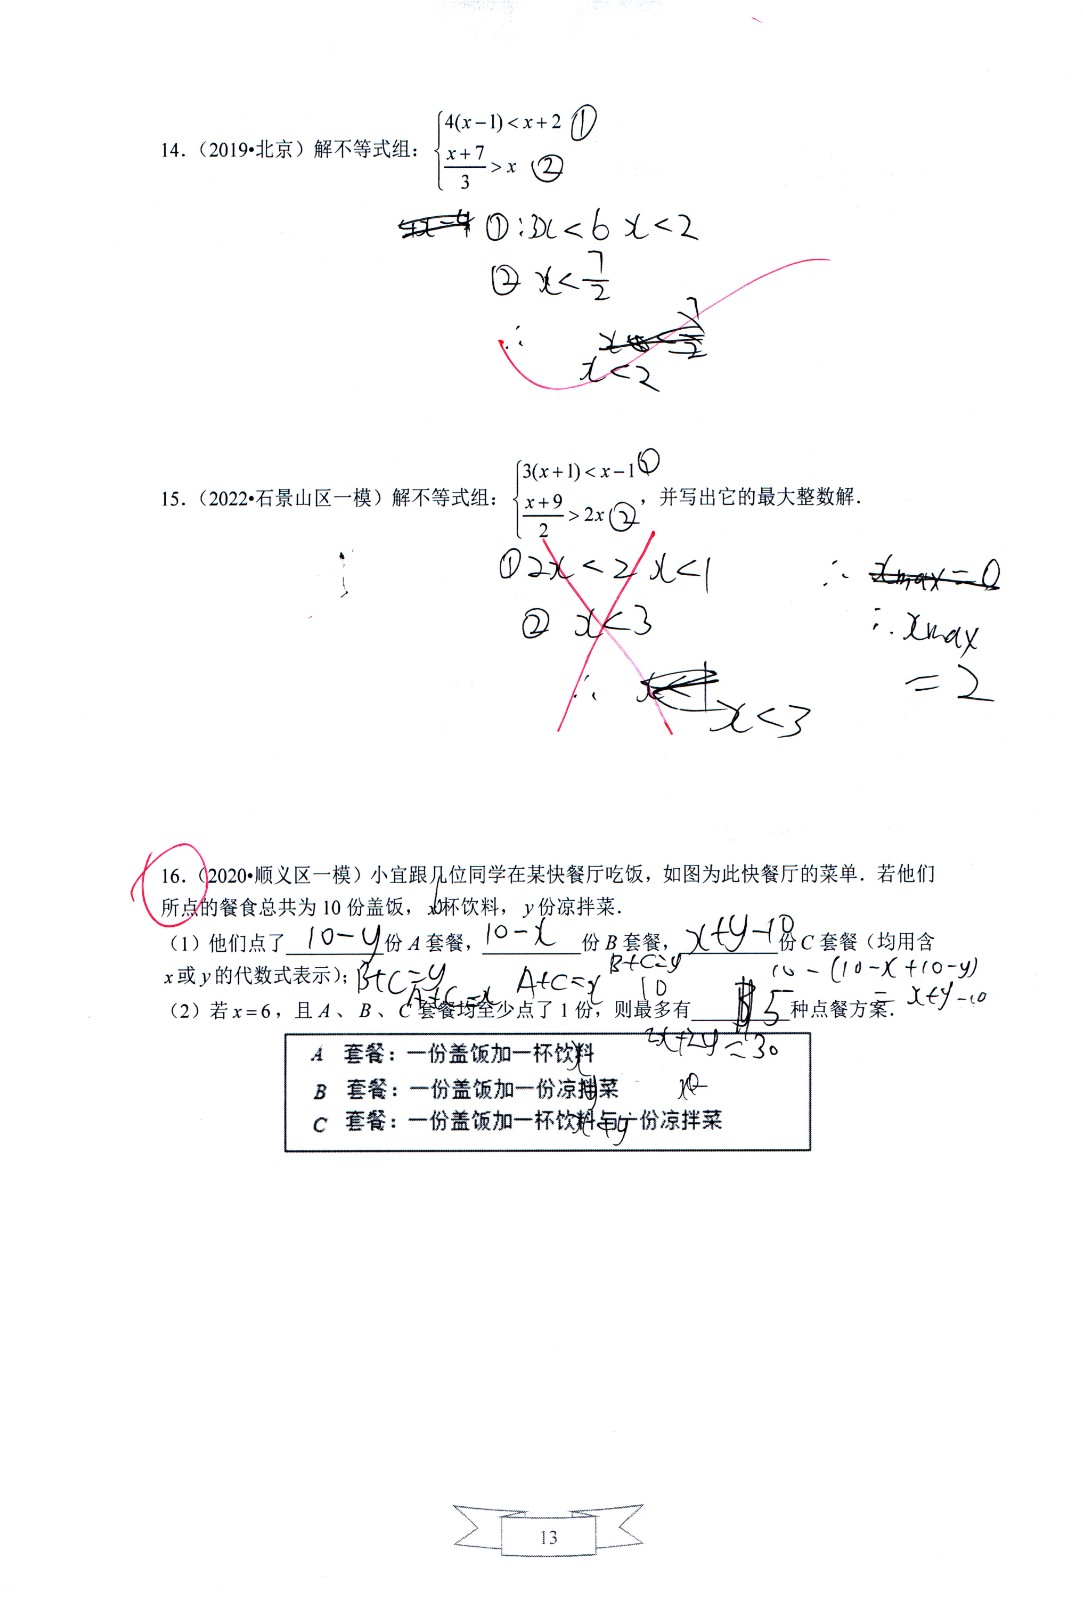 14.（2019•北京）解不等式组：{4(x−1)<x+2 ①
(x+7)/3>x ②
①:3x<6 x<2
② x<7/2
∴
x<2
15.（2022•石景山区一模）解不等式组：{3(x+1)<x−1 ①
(x+9)/2>2x ②，并写出它的最大整数解.
① 2x<2 x<1
② x<3
∴ x<3
∴ xmax=0
∴ xmax
=2
16.（2020•顺义区一模）小宜跟几位同学在某快餐厅吃饭，如图为此快餐厅的菜单．若他们
所点的餐食总共为10份盖饭，x杯饮料，y份凉拌菜．
6
（1）他们点了 10−y 份A套餐， 10−x 份B套餐， x+y−10 份C套餐（均用含
x或y的代数式表示）；
B+C=y
A+C=x
A+C=x
B+C=y
10
10−(10−x+10−y)
=x+y−10
（2）若x=6，且A、B、C套餐均至少点了1份，则最多有 5 种点餐方案．
2x+2y=30
A 套餐：一份盖饭加一杯饮料
x
B 套餐：一份盖饭加一份凉拌菜
y
C 套餐：一份盖饭加一杯饮料与一份凉拌菜
x+y
13